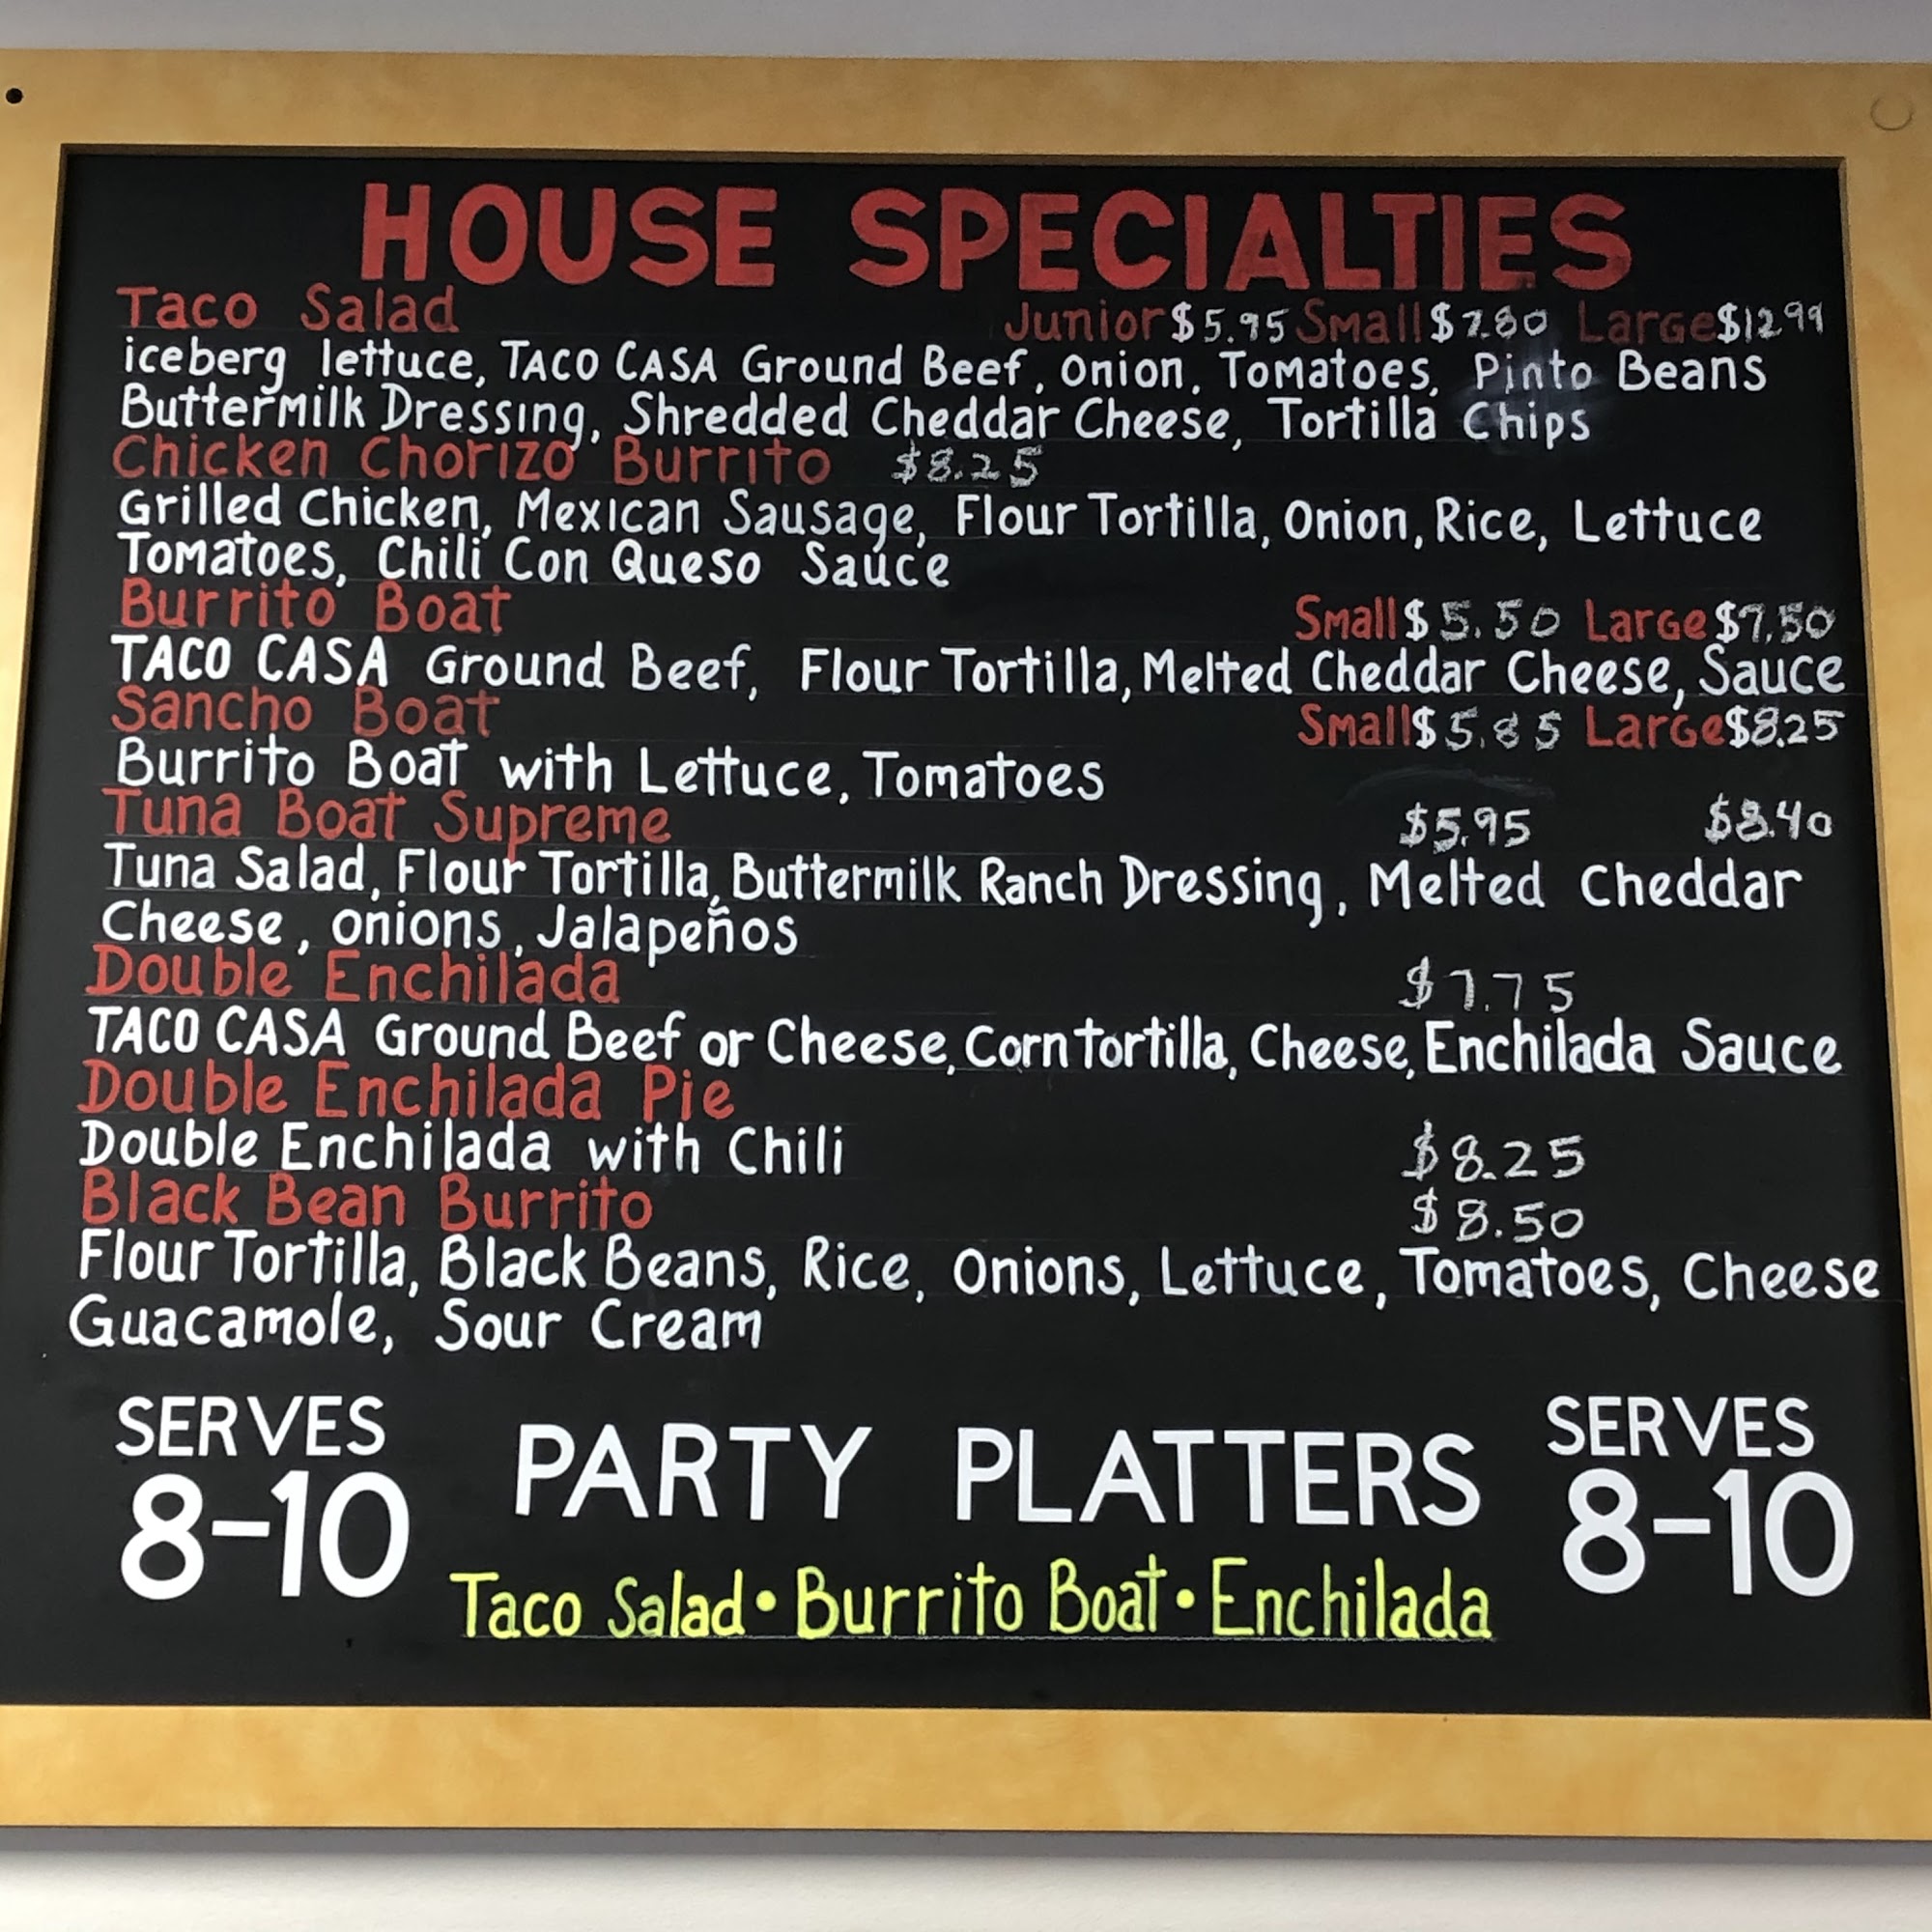 HOUSE SPECIALTIES
Taco Salad Junior $5.95 Small $7.80 Large $12.99
iceberg lettuce, TACO CASA Ground Beef, Onion, Tomatoes, Pinto Beans
Buttermilk Dressing, Shredded Cheddar Cheese, Tortilla Chips
Chicken Chorizo Burrito $8.25
Grilled Chicken, Mexican Sausage, Flour Tortilla, Onion, Rice, Lettuce
Tomatoes, Chili Con Queso Sauce
Burrito Boat Small $5.50 Large $7.50
TACO CASA Ground Beef, Flour Tortilla, Melted Cheddar Cheese, Sauce
Sancho Boat Small $5.85 Large $8.25
Burrito Boat with Lettuce, Tomatoes
Tuna Boat Supreme $5.95 $8.40
Tuna Salad, Flour Tortilla, Buttermilk Ranch Dressing, Melted Cheddar
Cheese, onions, Jalapeños
Double Enchilada $7.75
TACO CASA Ground Beef or Cheese, Corn tortilla, Cheese, Enchilada Sauce
Double Enchilada Pie
Double Enchilada with Chili $8.25
Black Bean Burrito $8.50
Flour Tortilla, Black Beans, Rice, Onions, Lettuce, Tomatoes, Cheese
Guacamole, Sour Cream
SERVES
8-10
PARTY PLATTERS
SERVES
8-10
Taco Salad • Burrito Boat • Enchilada